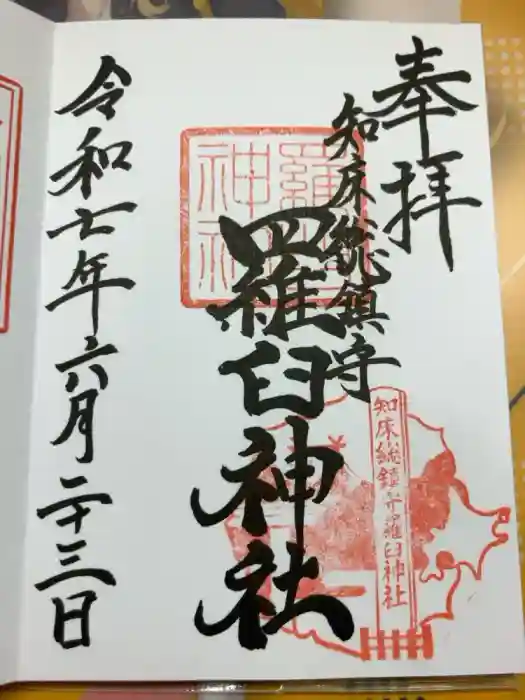 奉拝
知床総鎮守
羅臼神社
令和七年六月二十三日
羅臼神社
知床総鎮守羅臼神社